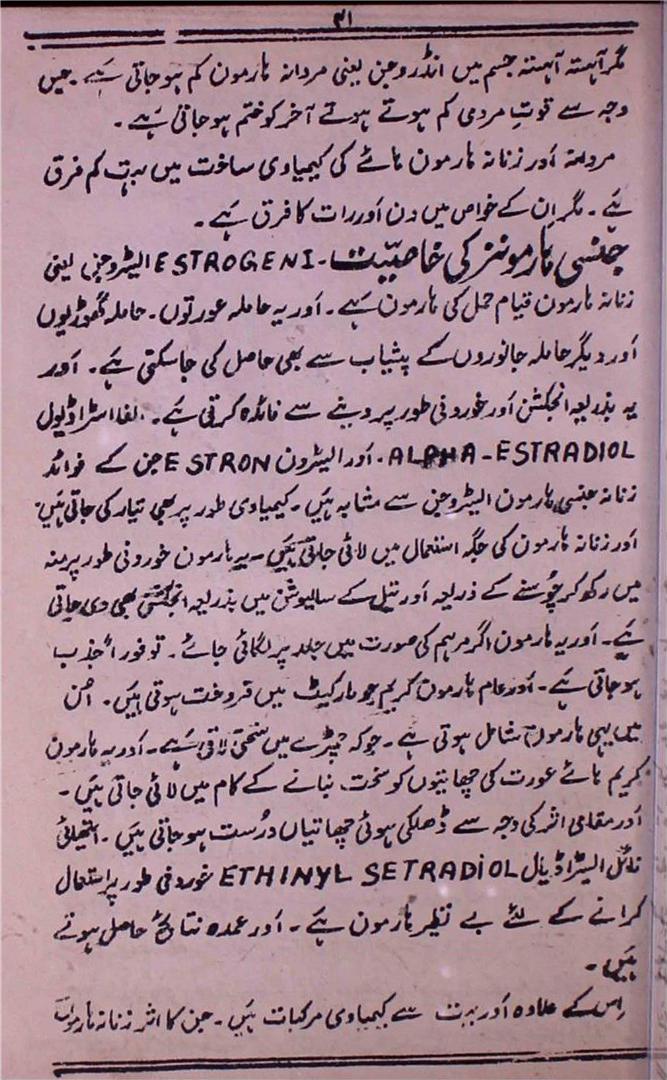 ۳۱
مگر آہستہ آہستہ جسم میں انڈروجن یعنی مردانہ ہارمون کم ہو جاتی ہَے۔ جس
وجہ سے قوتِ مردمی کم ہوتے ہوتے آخر کو ختم ہو جاتی ہَے۔
مردانہ اَور زنانہ ہارمون ہائے کی کیمیاوی ساخت میں بہت کم فرق
ہَے۔ مگر اِن کے خواص میں دن اَور رات کا فرق ہَے۔
جنسی ہارمونز کی خاصیّت۔ ESTROGENI الیسٹروجنی یعنی
زنانہ ہارمون قیام حمل کی ہارمون ہَے۔ اَور یہ حاملہ عورتوں۔ حاملہ گھوڑیوں
اَور دیگر حاملہ جانوروں کے پیشاب سے بھی حاصل کی جاسکتی ہَے۔ اَور
یہ بذریعہ انجکشن اَور خوردنی طور پر دینے سے فائدہ کرتی ہَے۔ الفا اسٹراڈیول
ALPHA-ESTRADIOL۔ اَور الیسٹرون ESTRON جن کے فوائد
زنانہ جنسی ہارمون الیسٹروجن سے مشابہ ہَیں۔ کیمیاوی طور پر بھی تیار کی جاتی ہَیں
اَور زنانہ ہارمون کی جگہ استعمال میں لائی جاتی ہَیں۔ یہ ہارمون خوردنی طور پر منہ
میں رکھ کر چُوسنے کے ذریعہ اَور تیل کے سالیوشن میں بذریعہ انجکشن بھی دی جاتی
ہَے۔ اَور یہ ہارمون اگر مرہم کی صورت میں جلد پر لگائی جائے۔ تو فوراً جذب
ہو جاتی ہَے۔ اَور عام ہارمون کریم جو مارکیٹ میں فروخت ہوتی ہَیں۔ اُن
میں یہی ہارمون شامل ہوتی ہے۔ جو کہ چمڑے میں سختی لاتی ہَے۔ اَور یہ ہارمون
کریم ہائے عورت کی چھاتیوں کو سخت بنانے کے کام میں لائی جاتی ہَیں۔
اَور مقامی اثر کی وجہ سے ڈھلکی ہوئی چھاتیاں درُست ہو جاتی ہَیں۔ ایتھیلائی
نائل الیسٹراڈیال ETHINYL SETRADIOL خوردنی طور پر استعمال
کرانے کے لئے بے نظیر ہارمون ہَے۔ اَور عمدہ نتائج حاصل ہوتے
ہَیں۔
اِس کے علاوہ اَور بہت سے کیمیاوی مرکبات ہَیں۔ جن کا اثر زنانہ ہارمون